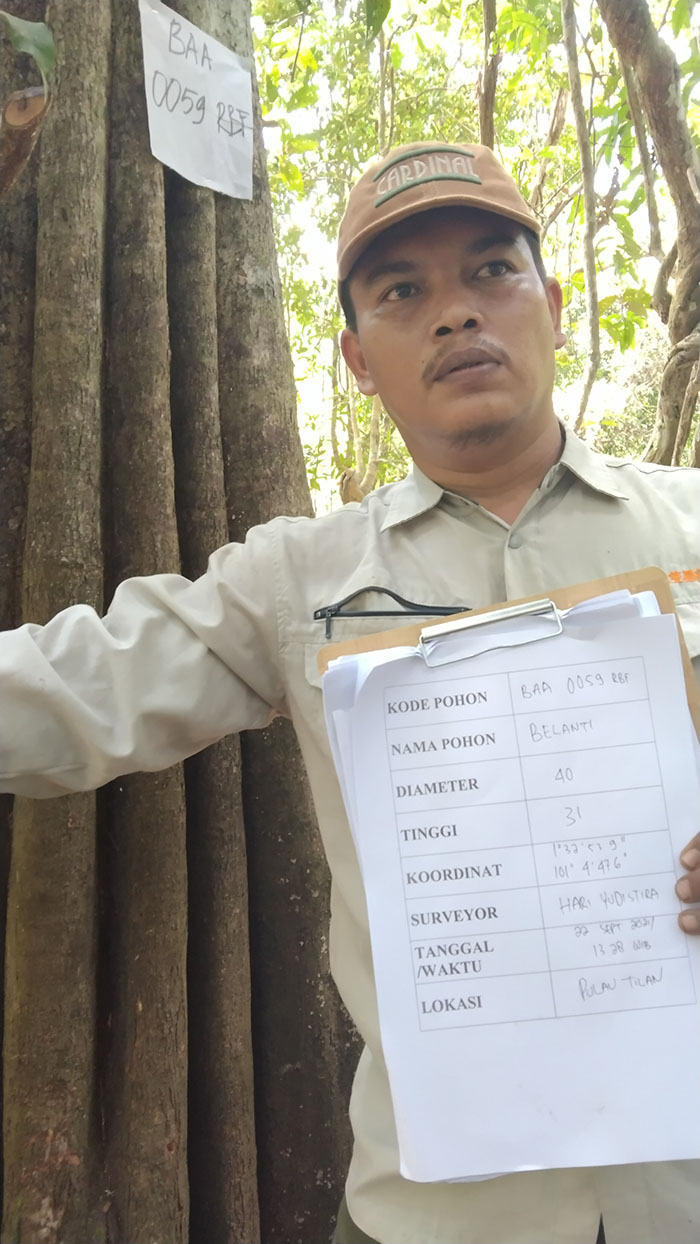 BAA
0059 RBF
CARDINAL
KODE POHON BAA 0059 RBF
NAMA POHON BELANTI
DIAMETER 40
TINGGI 31
KOORDINAT 1°32'53 9"
101° 4'47 6"
SURVEYOR HARI YUDISTIRA
TANGGAL 22 SEPT 2021/
/WAKTU 13.28 WIB
LOKASI PULAU TILAN